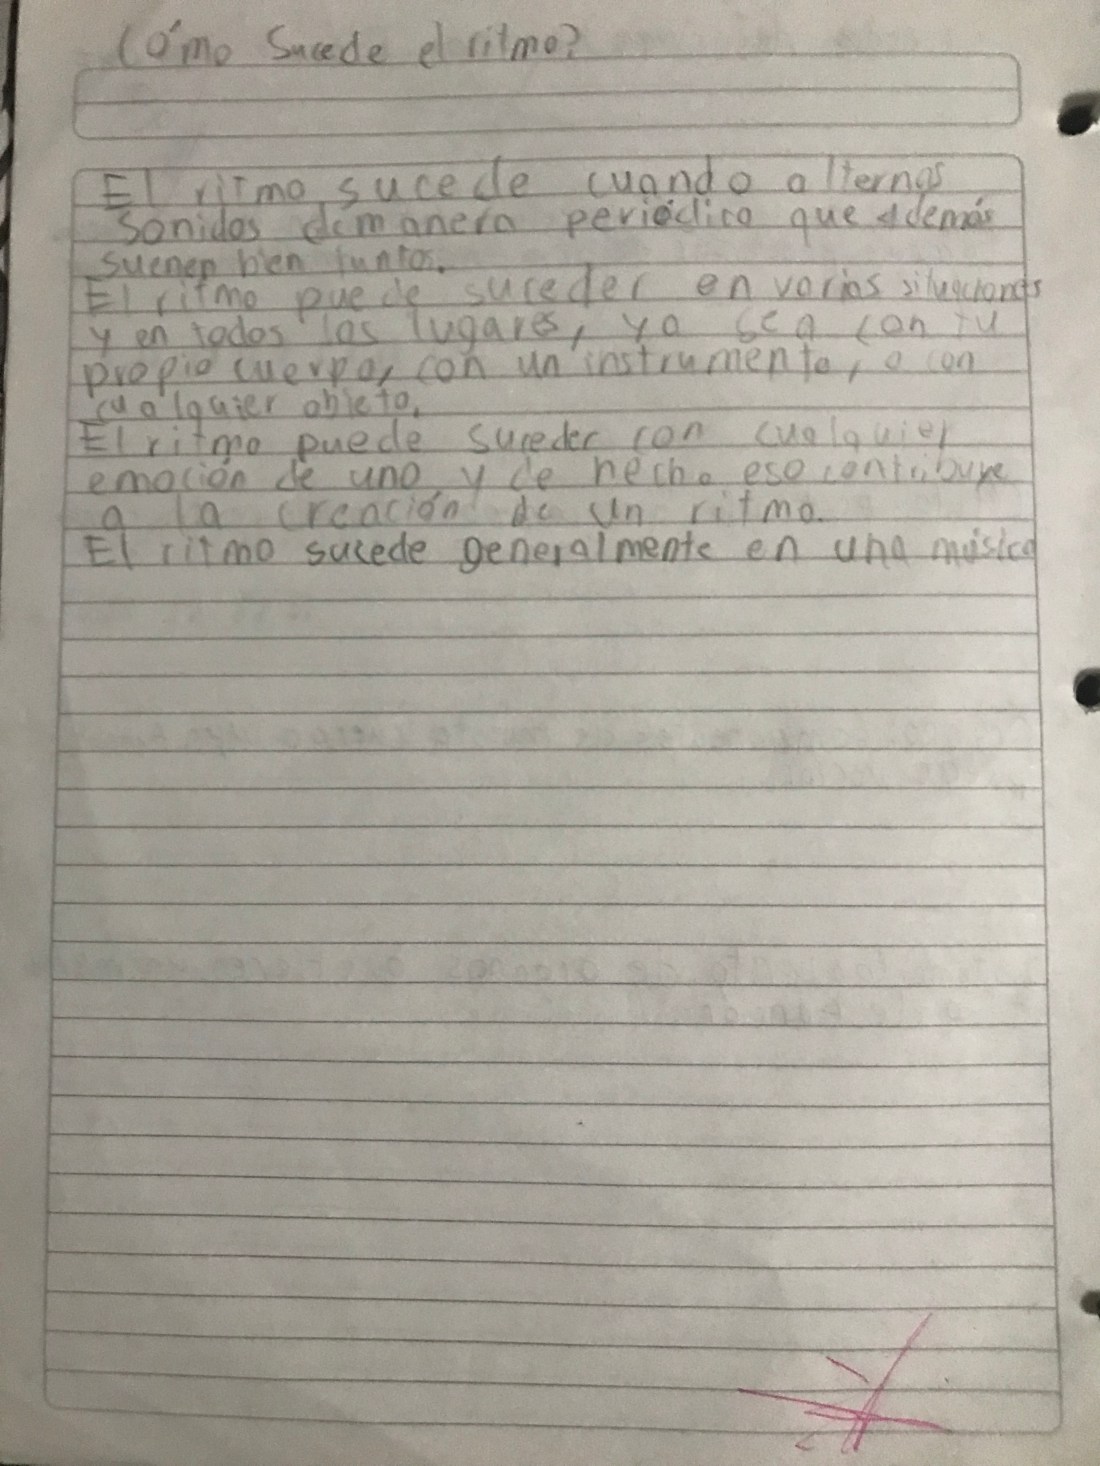 Cómo Sucede el ritmo?
El ritmo sucede cuando alternas
sonidos de manera periódica que además
suenen bien juntos.
El ritmo puede suceder en varias situaciones
y en todos los lugares, ya sea con tu
propio cuerpo, con un instrumento, o con
cualquier objeto.
El ritmo puede suceder con cualquier
emoción de uno y de hecho eso contribuye
a la creación de un ritmo.
El ritmo sucede generalmente en una música